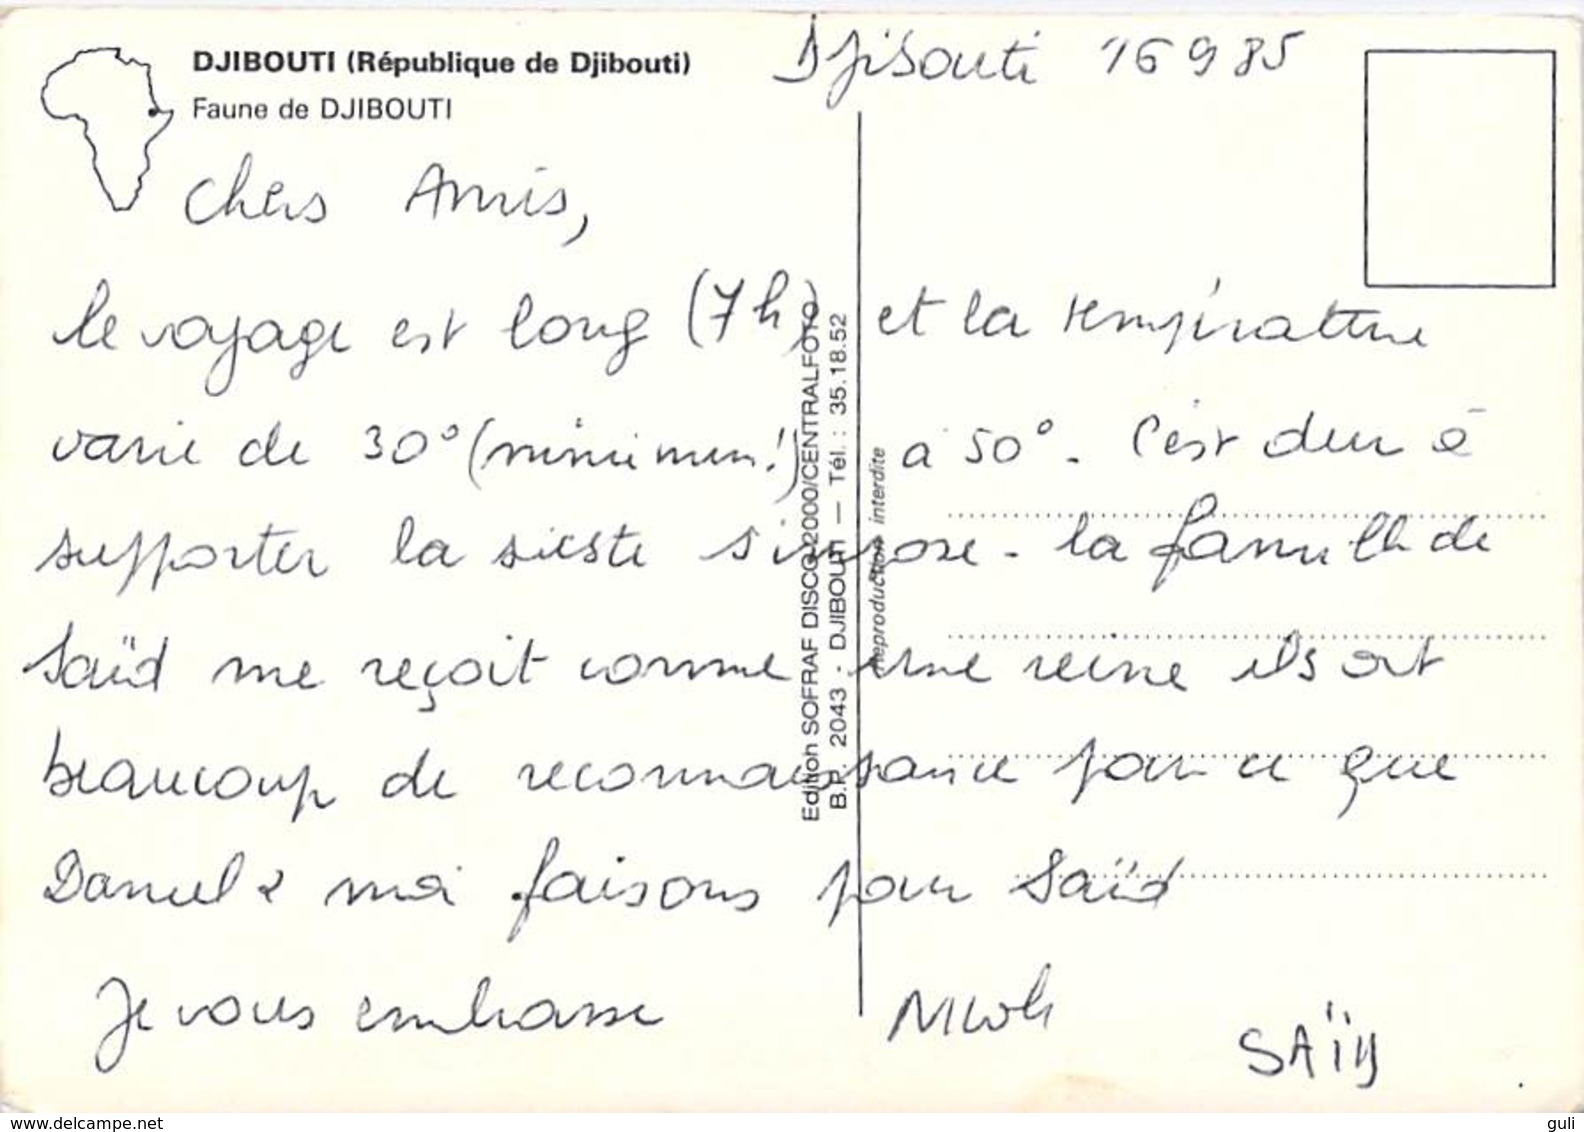 DJIBOUTI (République de Djibouti)
Faune de DJIBOUTI
Djibouti 16 9 85
Chers Amis,
le voyage est long (7h) et la température
varie de 30° (minimum!) à 50°. C'est dur à
supporter la sieste s'impose - la famille de
Saïd me reçoit comme une reine ils ont
beaucoup de reconnaissance pour ce que
Daniel & moi faisons pour Saïd
Je vous embrasse
SAÏD
Edition SOFRAF DISCO 2000/CENTRALFOTO
B.P. 2043 - DJIBOUTI — Tél. : 35.18.52
Reproduction interdite
www.delcampe.net
guli